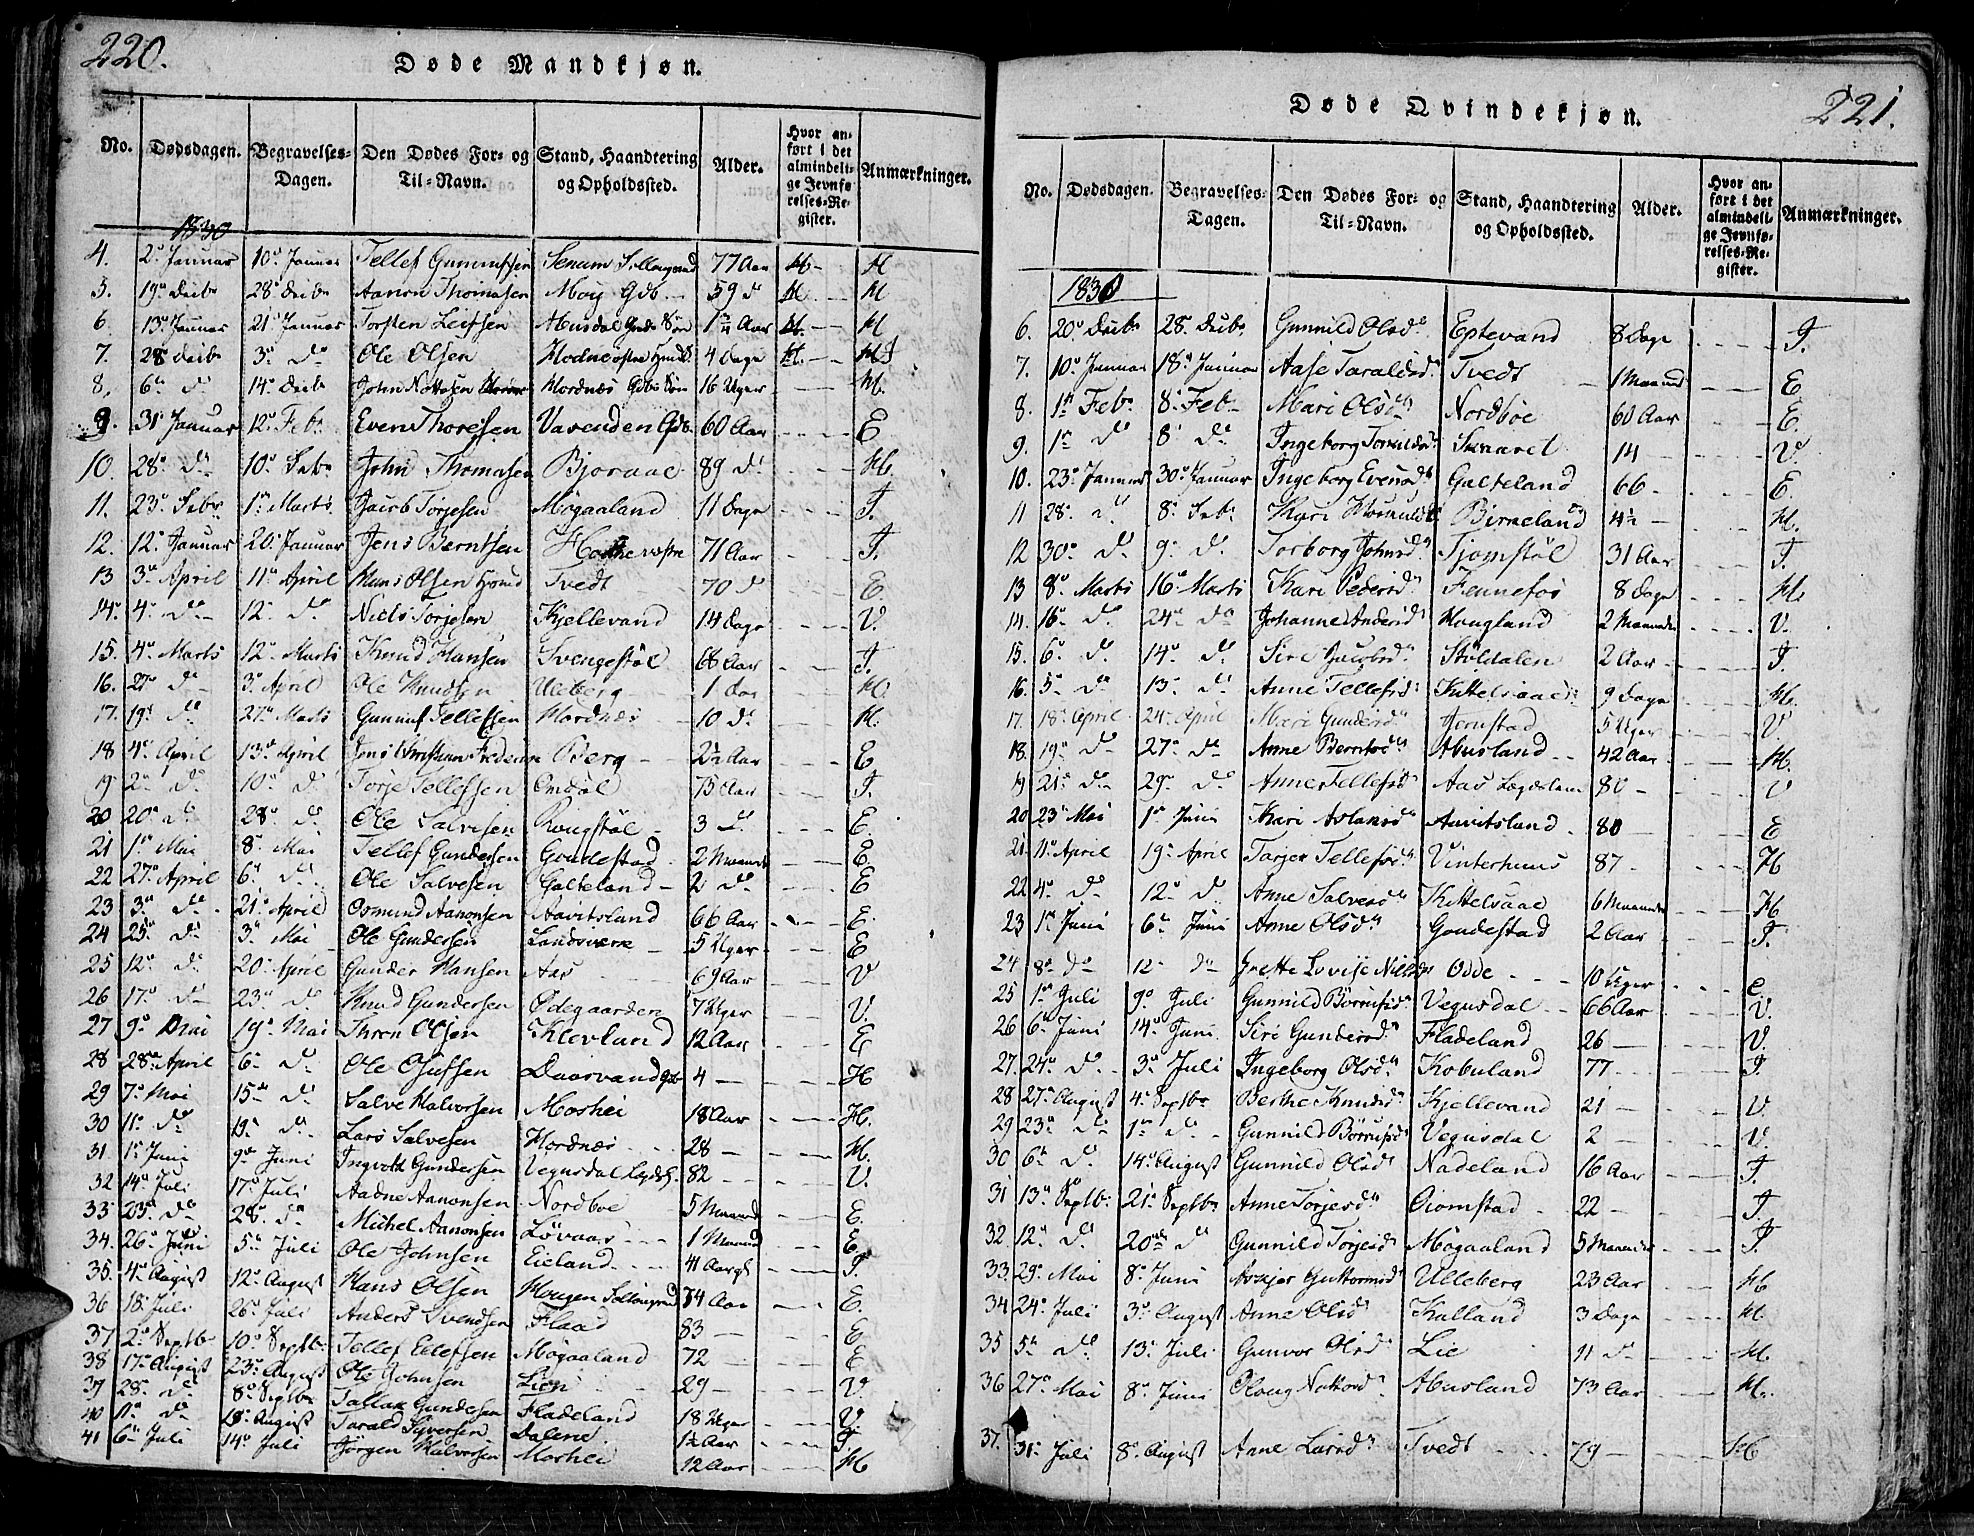 220.
Døde Mandkjøn.
No. Dødsdagen. Begravelses-Dagen. Den Dødes For- og Til-Navn. Stand, Haandtering og Opholdssted. Alder. Hvor anført i det almindelige Jevnførelses-Register. Anmærkninger.
1830
4. 2. Januar 10. Januar Tellef 77 Aar H
5. 19. Decbr 28. Decbr Aanon Thomasen Moy Gdb 59 d H
6. 13. Januar 21. Januar Torsten Leifsen 1 3/4 Aar H
7. 28 Decbr 3. do Ole Olsen 4 Dage
8. 6. d 14. Decbr John 16 Uger H.
9. 31 Januar 12. Feb. Even Thoresen Vavenden Gdb. 60 Aar E
10. 28. do 10. Febr John Thomasen Bjoraae 89 d. H.
11. 23. Febr 1. Marts Jacob Torjesen Møgaaland 11 Dage T.
12. 12. Januar 20. Januar Jens Berntsen 71 Aar T.
13 3. April 11. April Hans Olsen Tvedt 70 d E
14. 4. do 12. do Niels Torjesen Kjellevand 14 Dage V.
15. 4. Marts 12. Marts Knud Hansen Svengestøl 68 Aar T.
16. 27. do 3. April Ole Knudsen Uleberg 1 Dag H.
17. 19. do 27. Marts Gunnuf Tellefsen Hordnæs 10 d. H.
18 4. April 13. April Jens Christian Berg 2½ Aar E
19 2. do 10. do Torje Tellefsen Omdal 75 Aar T.
20 20. d 28. d. Ole Salvesen Rougstøl 3 d. E.
21 1. Mai 8. Mai Tellef Gundersen Goudestad 2 Maaneder E.
22 27. April 6. do Ole Salvesen Galteland 2 do E
23 3. do 21. April Osmund Aanonsen Aavitsland 66 Aar E.
24 25. do 3. Mai Ole Gundersen Landsverk 5 Uger E
25 12. do 20. April Gunder Hansen Aas 69 Aar V
26 17. do 23. do Knud Gundersen Ødegaarden 7 Uger V.
27 9. Mai 19. Mai Olsen Klevland 12 Aar E
28 28. April 6. do Ole Osufsen Daasvand Gdb 4 H
29 7. Mai 15. do Salve Halvorsen Moshei 18 Aar H.
30 11. do 19. do Lars Salvesen Hordnæs 28 H.
31. 1. Juni 9. Juni Gundersen Vegusdal 82 V.
32 14. Juli 17. Juli Aadne Aanonsen Nordboe 5 Maaned E.
33 23. do 28. do Michel Aanonsen Løvaas 1 Maaned E
34. 26. Juni 5. Juli Ole Johnsen Eieland 41 Aar T.
35. 4. August 12. August Hans Olsen Hougen 74 Aar E.
36 18. Juli 26. Juli Anders Svendsen Flaad 83 E
37 2. Septbr 10. Septbr Tellef Ellefsen Møgaaland 72 E
38 17. August 23. August Ole Johnsen Lien 29 V.
39 28. do 8. Septbr Tallak Gundersen Fladeland 18 Uger V
40 11. do 18. August Tarald Syversen Dalene 1½ Aar T
41 6. Juli 14. Juli Jørgen Halvorsen Moshei 12 Aar H
221.
Døde Qvindekjøn.
No. Dødsdagen. Begravelses-Dagen. Den Dødes For- og Til-Navn. Stand, Haandtering og Opholdssted. Alder. Hvor anført i det almindelige Jevnførelses-Register. Anmærkninger.
1830
6. 20. Decbr 28. Decbr Gunnild Olsd. Eptevand 8 Dage T.
7. 10. Januar 18. Januar Aase Taraldsd. Tvedt 1 Maaned E
8. 1. Feb. 8. Feb Mari Olsd. Nordbøe 60 Aar E.
9. 1. do 8. do Ingeborg Torkildsd. Skaarel 14 V
10. 23. Januar 30. Januar Ingeborg Evensd. Galteland 66 E.
11 28. d. 8. Feb. Kari Birkeland 4½ H.
12 30. do 9. do Torborg Johnsd. Tjomstøl 31 Aar T.
13 8. Marts 16. Marts Kari Pedersd. Fennefos 8 Dage H.
14. 16. do 24. do Johanne Andersd. Hougland 2 Maaneder V.
15. 6. do 14. do Siri Jacobsd. Støldalen 2 Aar T.
16. 5. do 13. do Anne Tellefsd. Kittelsaae 9 Dage H.
17. 18. April 24. April Mari Gundersd. Jernstad 5 Uger V.
18. 19. do 27. do Anne Berntsd. Abusland 42 Aar H.
19 21. do 29. do Anne Tellefsd. Aas 80 V
20 23. Mai 1. Juni Kari Aslaksd. Aavitsland 80 E
21. 11. April 19. April Tarjer Tellefsd. Vinterhuus 87 H
22 4. do 12. do Anne Salvesd. Kittelsaae 6 Maaneder H
23 1. Juni 6. Juni Anne Olsd. Goudestad 2 Aar T.
24 8. do 12. do Grette Lovise Nielsd. Odde 10 Uger E
25 1. Juli 9. Juli Gunnild Børrufsd. Vegusdal 66 Aar V.
26 6. Juni 14. Juni Siri Gundersd. Fladeland 26 V.
27. 24. do 3. Juli Ingeborg Olsd. Kobuland 77 T
28 27. August 4. Septbr Berthe Knudsd. Kjellevand 21 V
29 23. do 1. do Gunnild Børrufsd. Vegusdal 2 V.
30 6. do 14. August Gunnild Olsd. Nadeland 16 Aar T.
31 13. Septbr 21. Septbr Anne Torjesd. Oiomstad 22 T
32. 12. do 20. do Gunnild Torjesd. Møgaaland 5 Maaneder T.
33. 29. Mai 8. Juni Askjer Guttormsd. Ulleberg 23 Aar H
34 24. Juli 3. August Anne Olsd. Kalland 3 Dage H.
35 5. do 13. Juli Gunvor Olsd. Lie 11 do H.
36 27. Mai 8. Juni Oloug Abusland 73 Aar H.
37. 31. Juli 8. August Anne Larsd. Tvedt 79 H